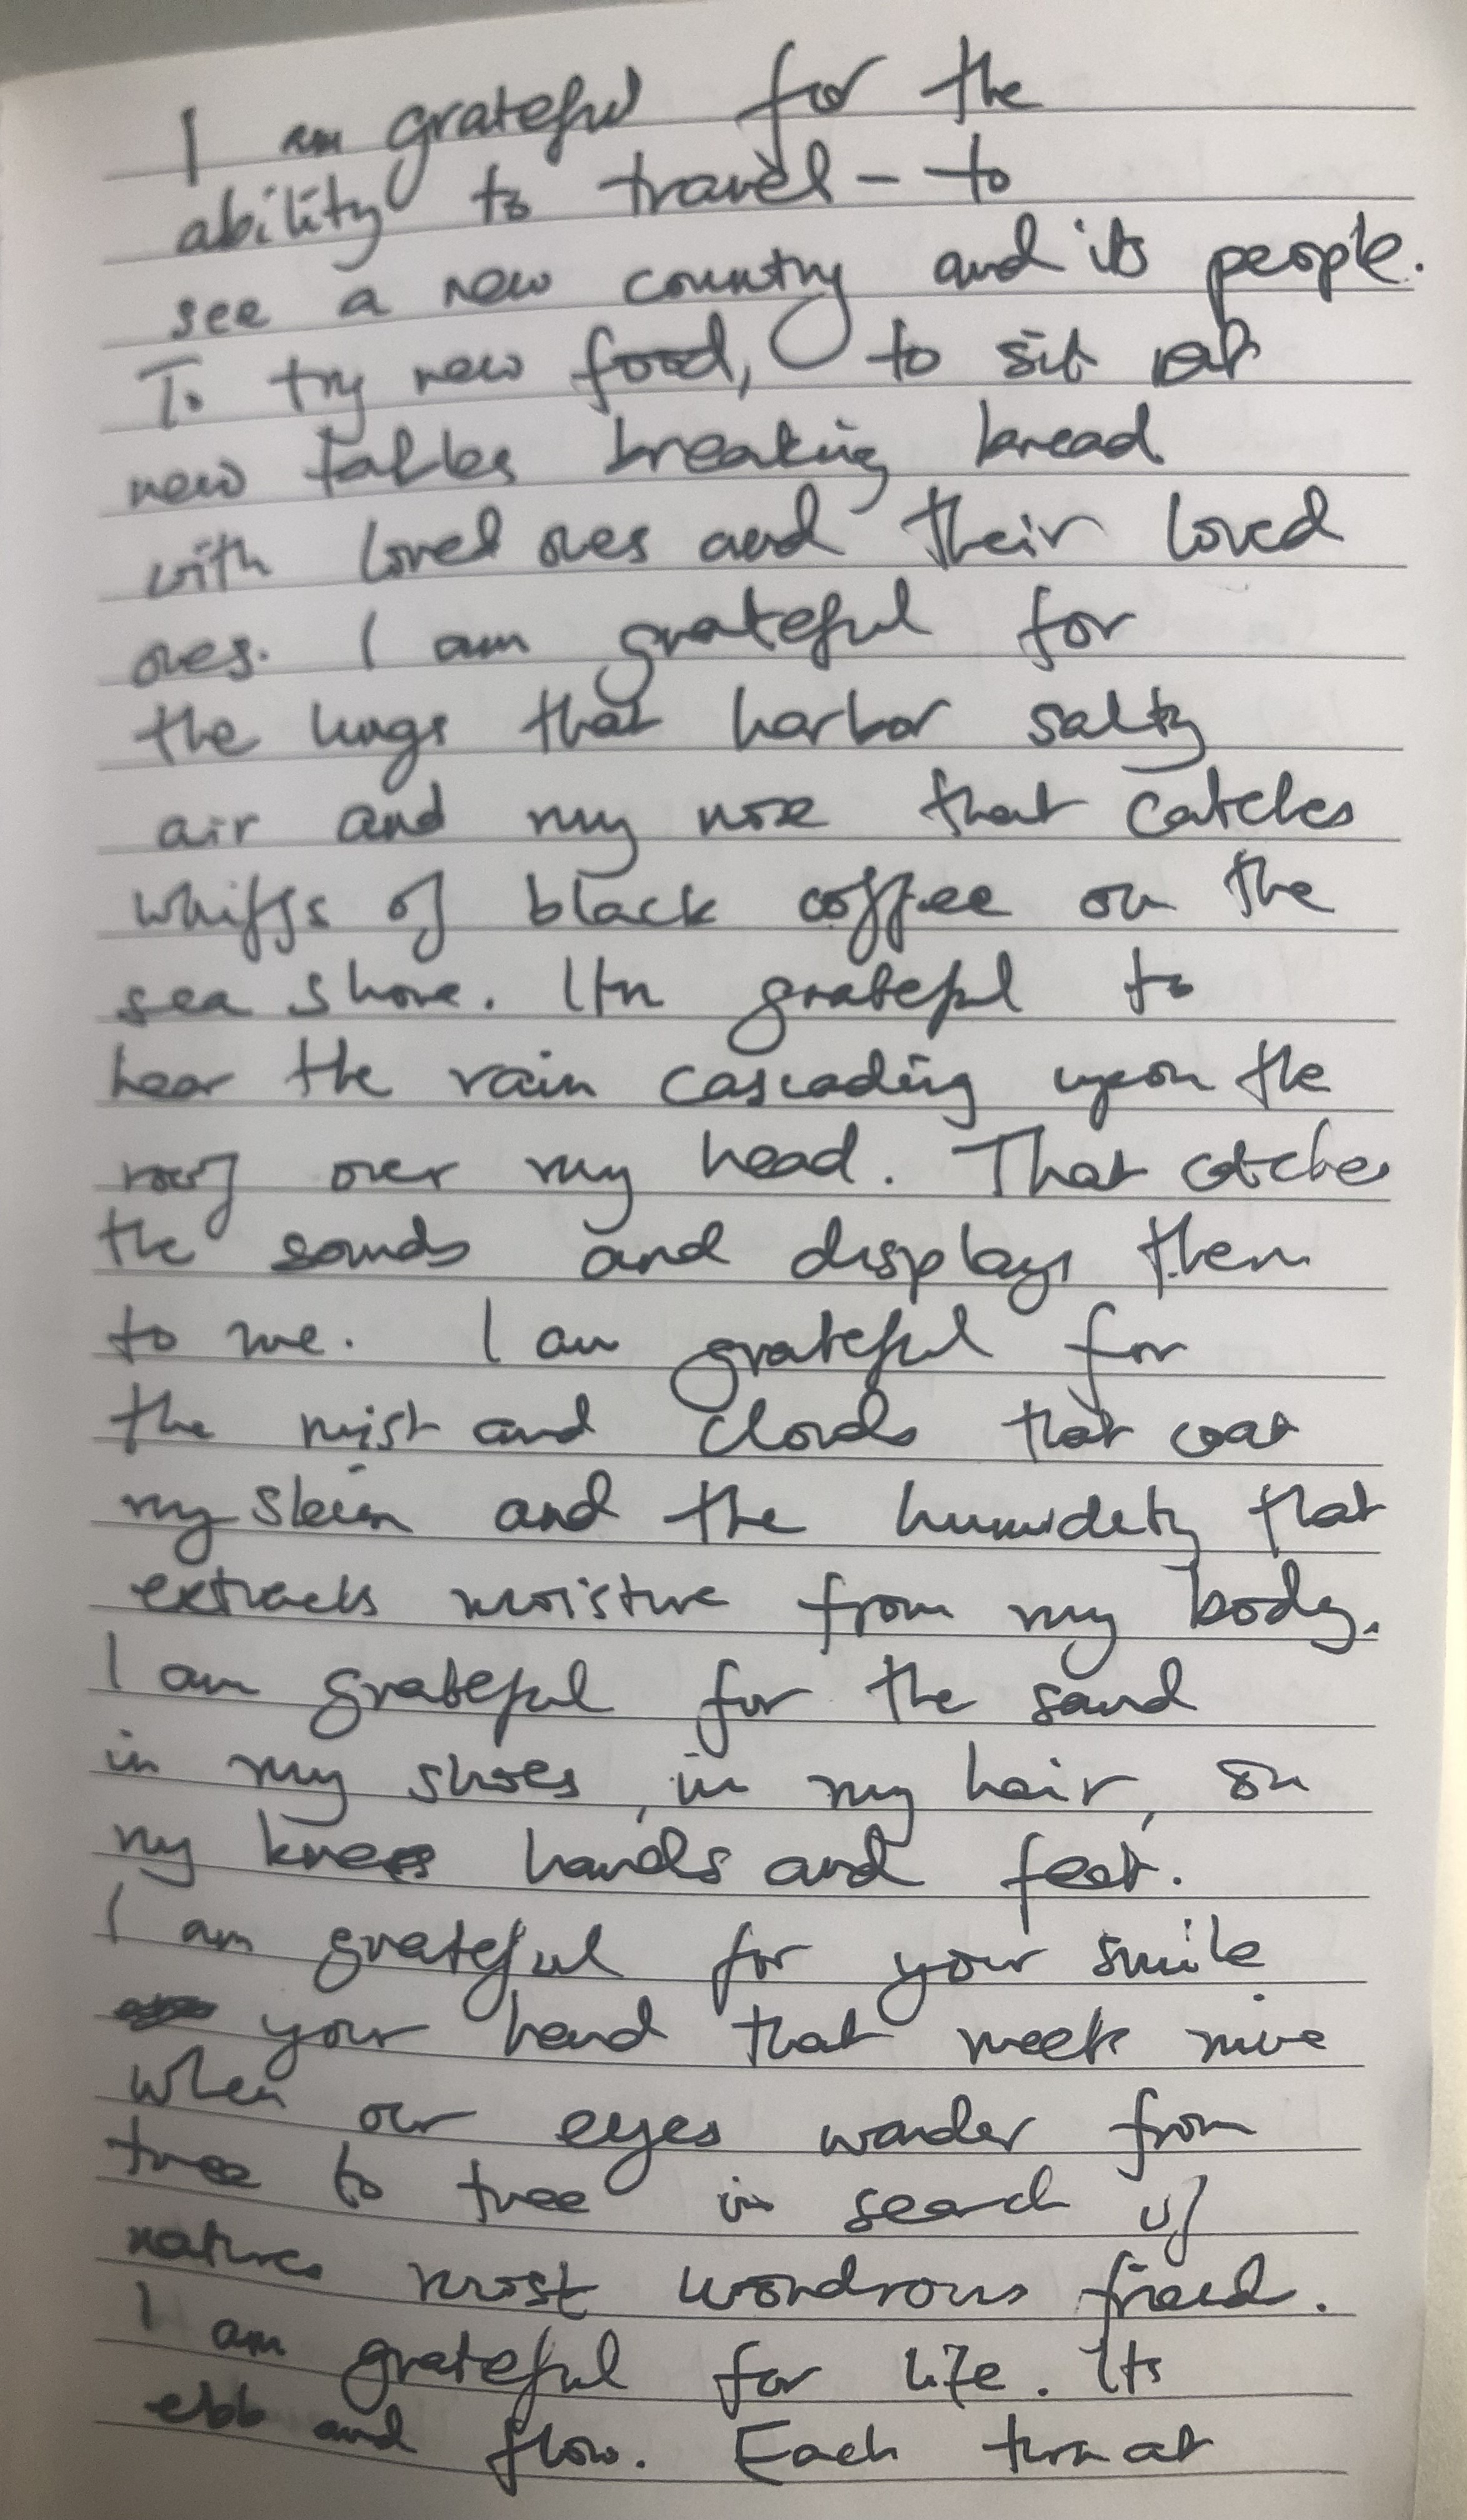 I am grateful for the
ability to travel - to
see a new country and its people.
To try new food, to sit at
new tables breaking bread
with loved ones and their loved
ones. I am grateful for
the lungs that harbor salty
air and my nose that catches
whiffs of black coffee on the
sea shore. I'm grateful to
hear the rain cascading upon the
roof over my head. That catches
the sounds and displays them
to me. I am grateful for
the mist and clouds that coat
my skin and the humidity that
extracts moisture from my body.
I am grateful for the sand
in my shoes, in my hair, on
my knees hands and feet.
I am grateful for your smile
your hand that meets mine
when our eyes wander from
tree to tree in search of
natures most wondrous friend.
I am grateful for life. Its
ebb and flow. Each turn at